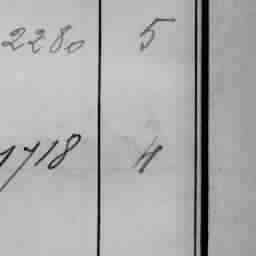 2280 5
1718 4